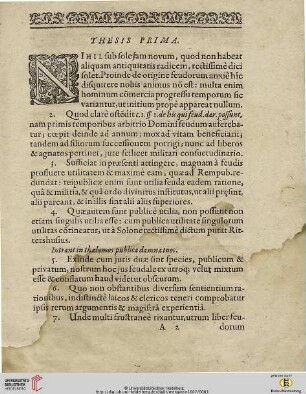 THESIS PRIMA.
NIHIL sub sole tam novum, quod non habeat
aliquam antiquitatis radicem, rectissimè dici
solet. Proinde de origine feudorum anxiè hîc
disquirere nobis animus nō est: multa enim
hominum cōmercia progressu temporum sic
variantur, ut initium propè appareat nullum.
2. Quod clarè ostēdit c. 1. de his qui feud. dar. possunt,
nam primis temporibus arbitrio Domini feudum aufereba-
tur; cœpit deinde ad annum; mox ad vitam beneficiarii;
tandem ad filiorum successionem porrigi; nunc ad liberos
& agnatos pertinet, jure scilicet militari consuetudinario.
3. Sufficiat in præsenti attingere, magnam à feudis
profluere utilitatem & maximè eam, quæ ad Rempub. re-
dundat: reipublicæ enim sunt utilia feuda eadem ratione,
quâ & militia, & quâ ordo divinitus institutus, ut alii præsint,
alii pareant, & in illis sint alii aliis superiores.
4. Quæ autem sunt publicè utilia, non possunt non
etiam singulis utilia esse: cum publica utilitate singulorum
utilitas cōtineatur, ut à Solone rectissimè dictum putat Rit-
tershusius.
Intrant in thalamos publica damna tuos.
5. Exinde cum juris duæ sint species, publicum &
privatum, nostrum hoc jus feudale ex utroq; velut mixtum
esse & constatum haud videtur obscurum.
6. Quo non obstantibus diversum sentientium ra-
tionibus, indistinctè laicos & clericos teneri comprobatur
ipsis rerum argumentis & magistrâ experientiâ.
7. Unde multi frustraneè rixantur, utrum liber feu-
A 2 dotum
UNIVERSITÄTS-
BIBLIOTHEK
HEIDELBERG
© Universitätsbibliothek Heidelberg